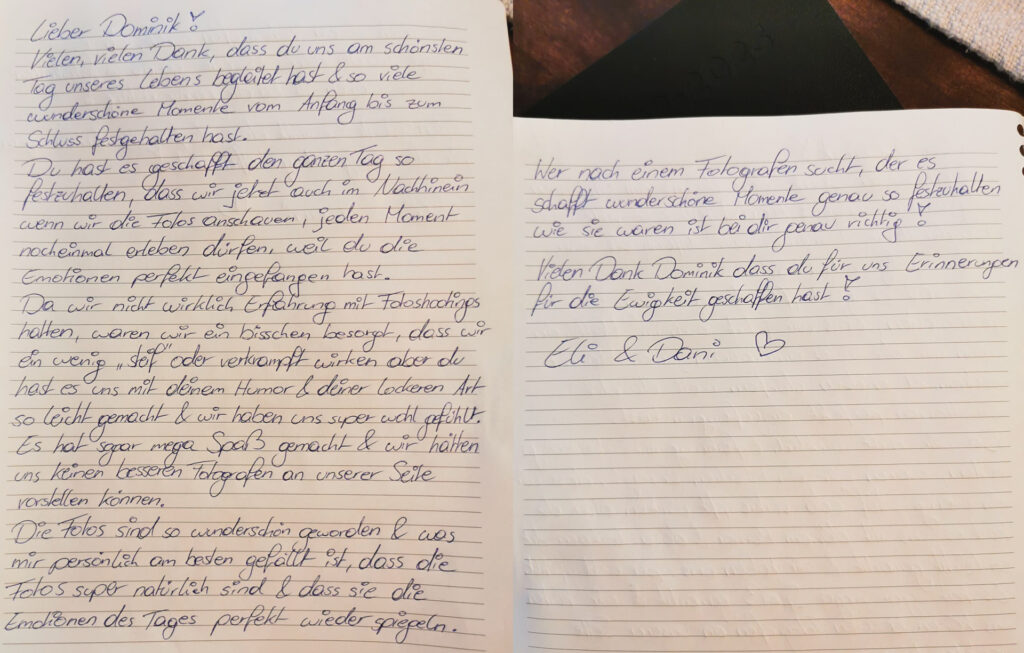 Lieber Dominik!
Vielen, vielen Dank, dass du uns am schönsten
Tag unseres Lebens begleitet hast & so viele
wunderschöne Momente vom Anfang bis zum
Schluss festgehalten hast.
Du hast es geschafft den ganzen Tag so
festzuhalten, dass wir jetzt auch im Nachhinein
wenn wir die Fotos anschauen, jeden Moment
nocheinmal erleben dürfen, weil du die
Emotionen perfekt eingefangen hast.
Da wir nicht wirklich Erfahrung mit Fotoshootings
hatten, waren wir ein bisschen besorgt, dass wir
ein wenig „steif" oder verkrampft wirken aber du
hast es uns mit deinem Humor & deiner lockeren Art
so leicht gemacht & wir haben uns super wohl gefühlt.
Es hat sogar mega Spaß gemacht & wir hätten
uns keinen besseren Fotografen an unserer Seite
vorstellen können.
Die Fotos sind so wunderschön geworden & was
mir persönlich am besten gefällt ist, dass die
Fotos super natürlich sind & dass sie die
Emotionen des Tages perfekt wieder spiegeln.
Wer nach einem Fotografen sucht, der es
schafft wunderschöne Momente genau so festzuhalten
wie sie waren ist bei dir genau richtig!
Vielen Dank Dominik dass du für uns Erinnerungen
für die Ewigkeit geschaffen hast!
Eli & Dani ♡